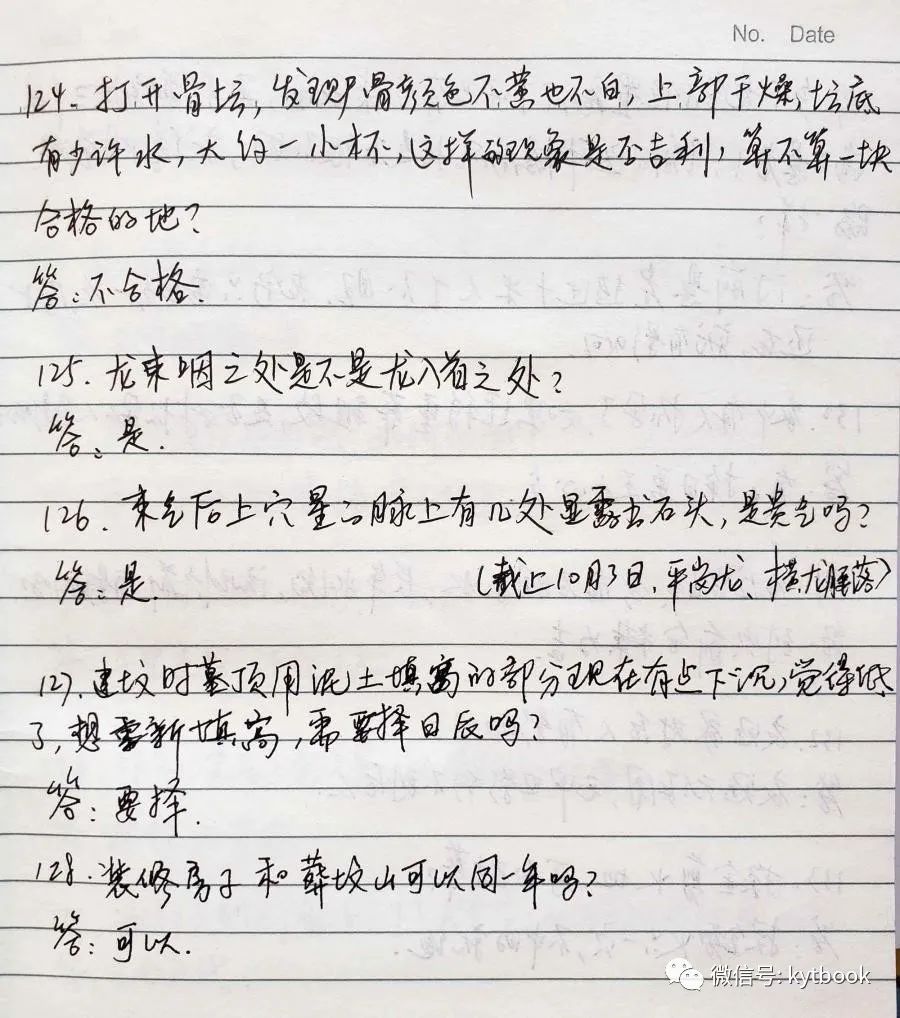 No. Date
124. 打开骨坛，发现骨颜色不黄也不白，上部干燥，坛底
有少许水，大约一小杯，这样的现象是否吉利，算不算一块
合格的地？
答：不合格.
125. 龙束咽之处是不是龙入首之处？
答：是.
126. 来气后上穴星的脉上有几处显露出石头，是贵气吗？
答：是.
（截止10月3日，平岗龙、横龙腰落）
127. 建坟时墓顶用泥土填高的部分现在有点下沉，觉得低
了，想重新填高，需要择日辰吗？
答：要择.
128. 装修房子和葬坟山可以同一年吗？
答：可以.
微信号: kytbook